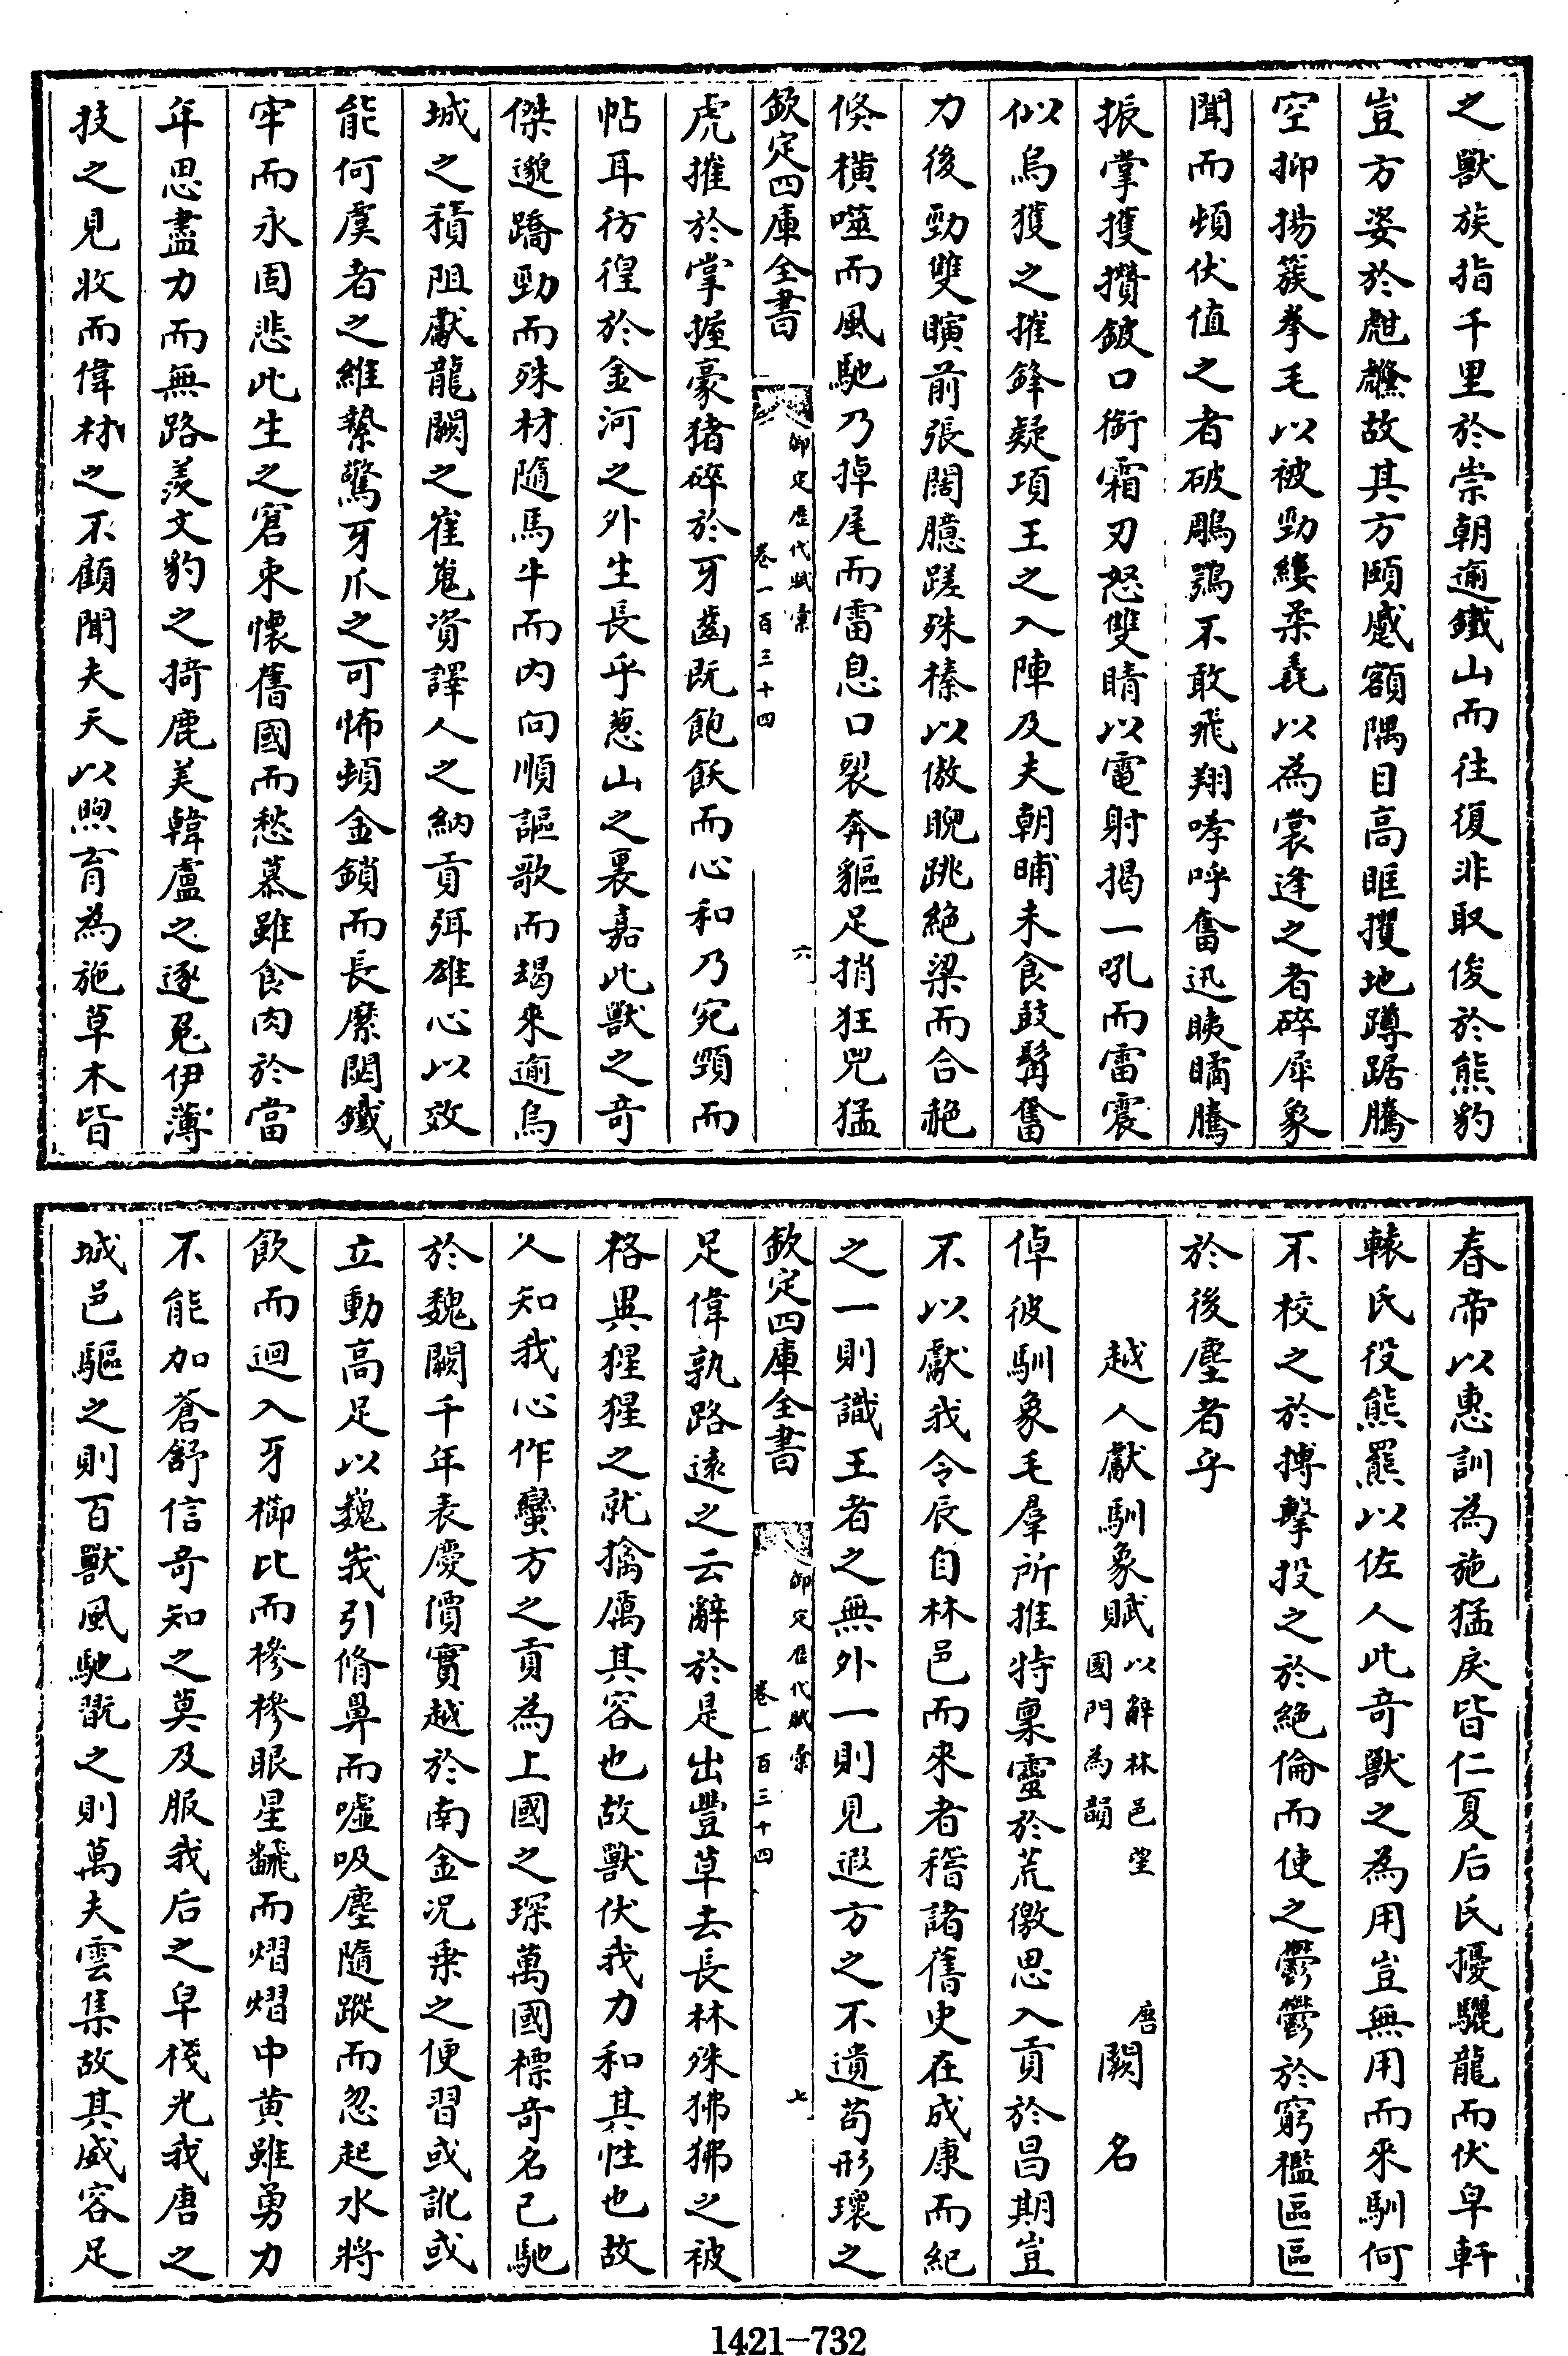 之獸族指千里於崇朝逾鐵山而往復非取俊於熊豹
豈方姿於虪䖜故其方頤蹙額隅目高眶攫地蹲踞騰
空抑揚簇拳毛以被勁縷柔毳以為裳逢之者碎犀象
聞而頓伏值之者破鵰鶚不敢飛翔哮呼奮迅䀢瞲騰
振掌擭攢鈹口銜霜刃怒雙睛以電射揭一吼而雷震
似烏獲之摧鋒疑項王之入陣及夫朝晡未食鼓髯奮
力後勁雙瞋前張闊臆蹉殊榛以傲睨跳絕梁而合赩
倏橫噬而風馳乃掉尾而雷息口裂奔貙足捎狂兕猛
欽定四庫全書
御定歷代賦彙
卷一百三十四
六
虎摧於掌握豪猪碎於牙齒既飽飫而心和乃宛頸而
帖耳彷徨於金河之外生長乎蔥山之裏嘉此獸之奇
傑邈蹻勁而殊材隨馬牛而内向順謳歌而朅來逾烏
城之積阻獻龍闕之崔嵬資譯人之納貢弭雄心以效
能何虞者之維縶驚牙爪之可怖頓金鎖而長縻閟鐵
牢而永固悲此生之窘束懷舊國而愁慕雖食肉於當
年思盡力而無路羨文豹之掎鹿美韓盧之逐兎伊薄
技之見收而偉材之不顧聞夫天以煦育為施草木皆
春帝以惠訓為施猛戾皆仁夏后氏擾驪龍而伏皁軒
轅氏役熊羆以佐人此奇獸之為用豈無用而來馴何
不校之於搏擊投之於絶倫而使之鬱鬱於窮檻區區
於後塵者乎
越人獻馴象賦以辭林邑望國門為韻 唐闕名
倬彼馴象毛羣所推特稟靈於荒徼思入貢於昌期豈
不以獻我令辰自林邑而來者稽諸舊史在成康而紀
之一則識王者之無外一則見遐方之不遺苟形瓌之
欽定四庫全書
御定歷代賦彙
卷一百三十四
七
足偉孰路遠之云辭於是出豐草去長林殊狒狒之被
格異猩猩之就擒厲其容也故獸伏我力和其性也故
人知我心作蠻方之貢為上國之琛萬國標奇名已馳
於魏闕千年表慶價實越於南金况乗之便習或訛或
立動高足以巍峩引脩鼻而嘘吸塵隨蹤而忽起水將
飲而迴入牙櫛比而槮槮眼星翻而熠熠中黄雖勇力
不能加蒼舒信奇知之莫及服我后之皁棧光我唐之
城邑驅之則百獸風馳翫之則萬夫雲集故其威容足
1421-732